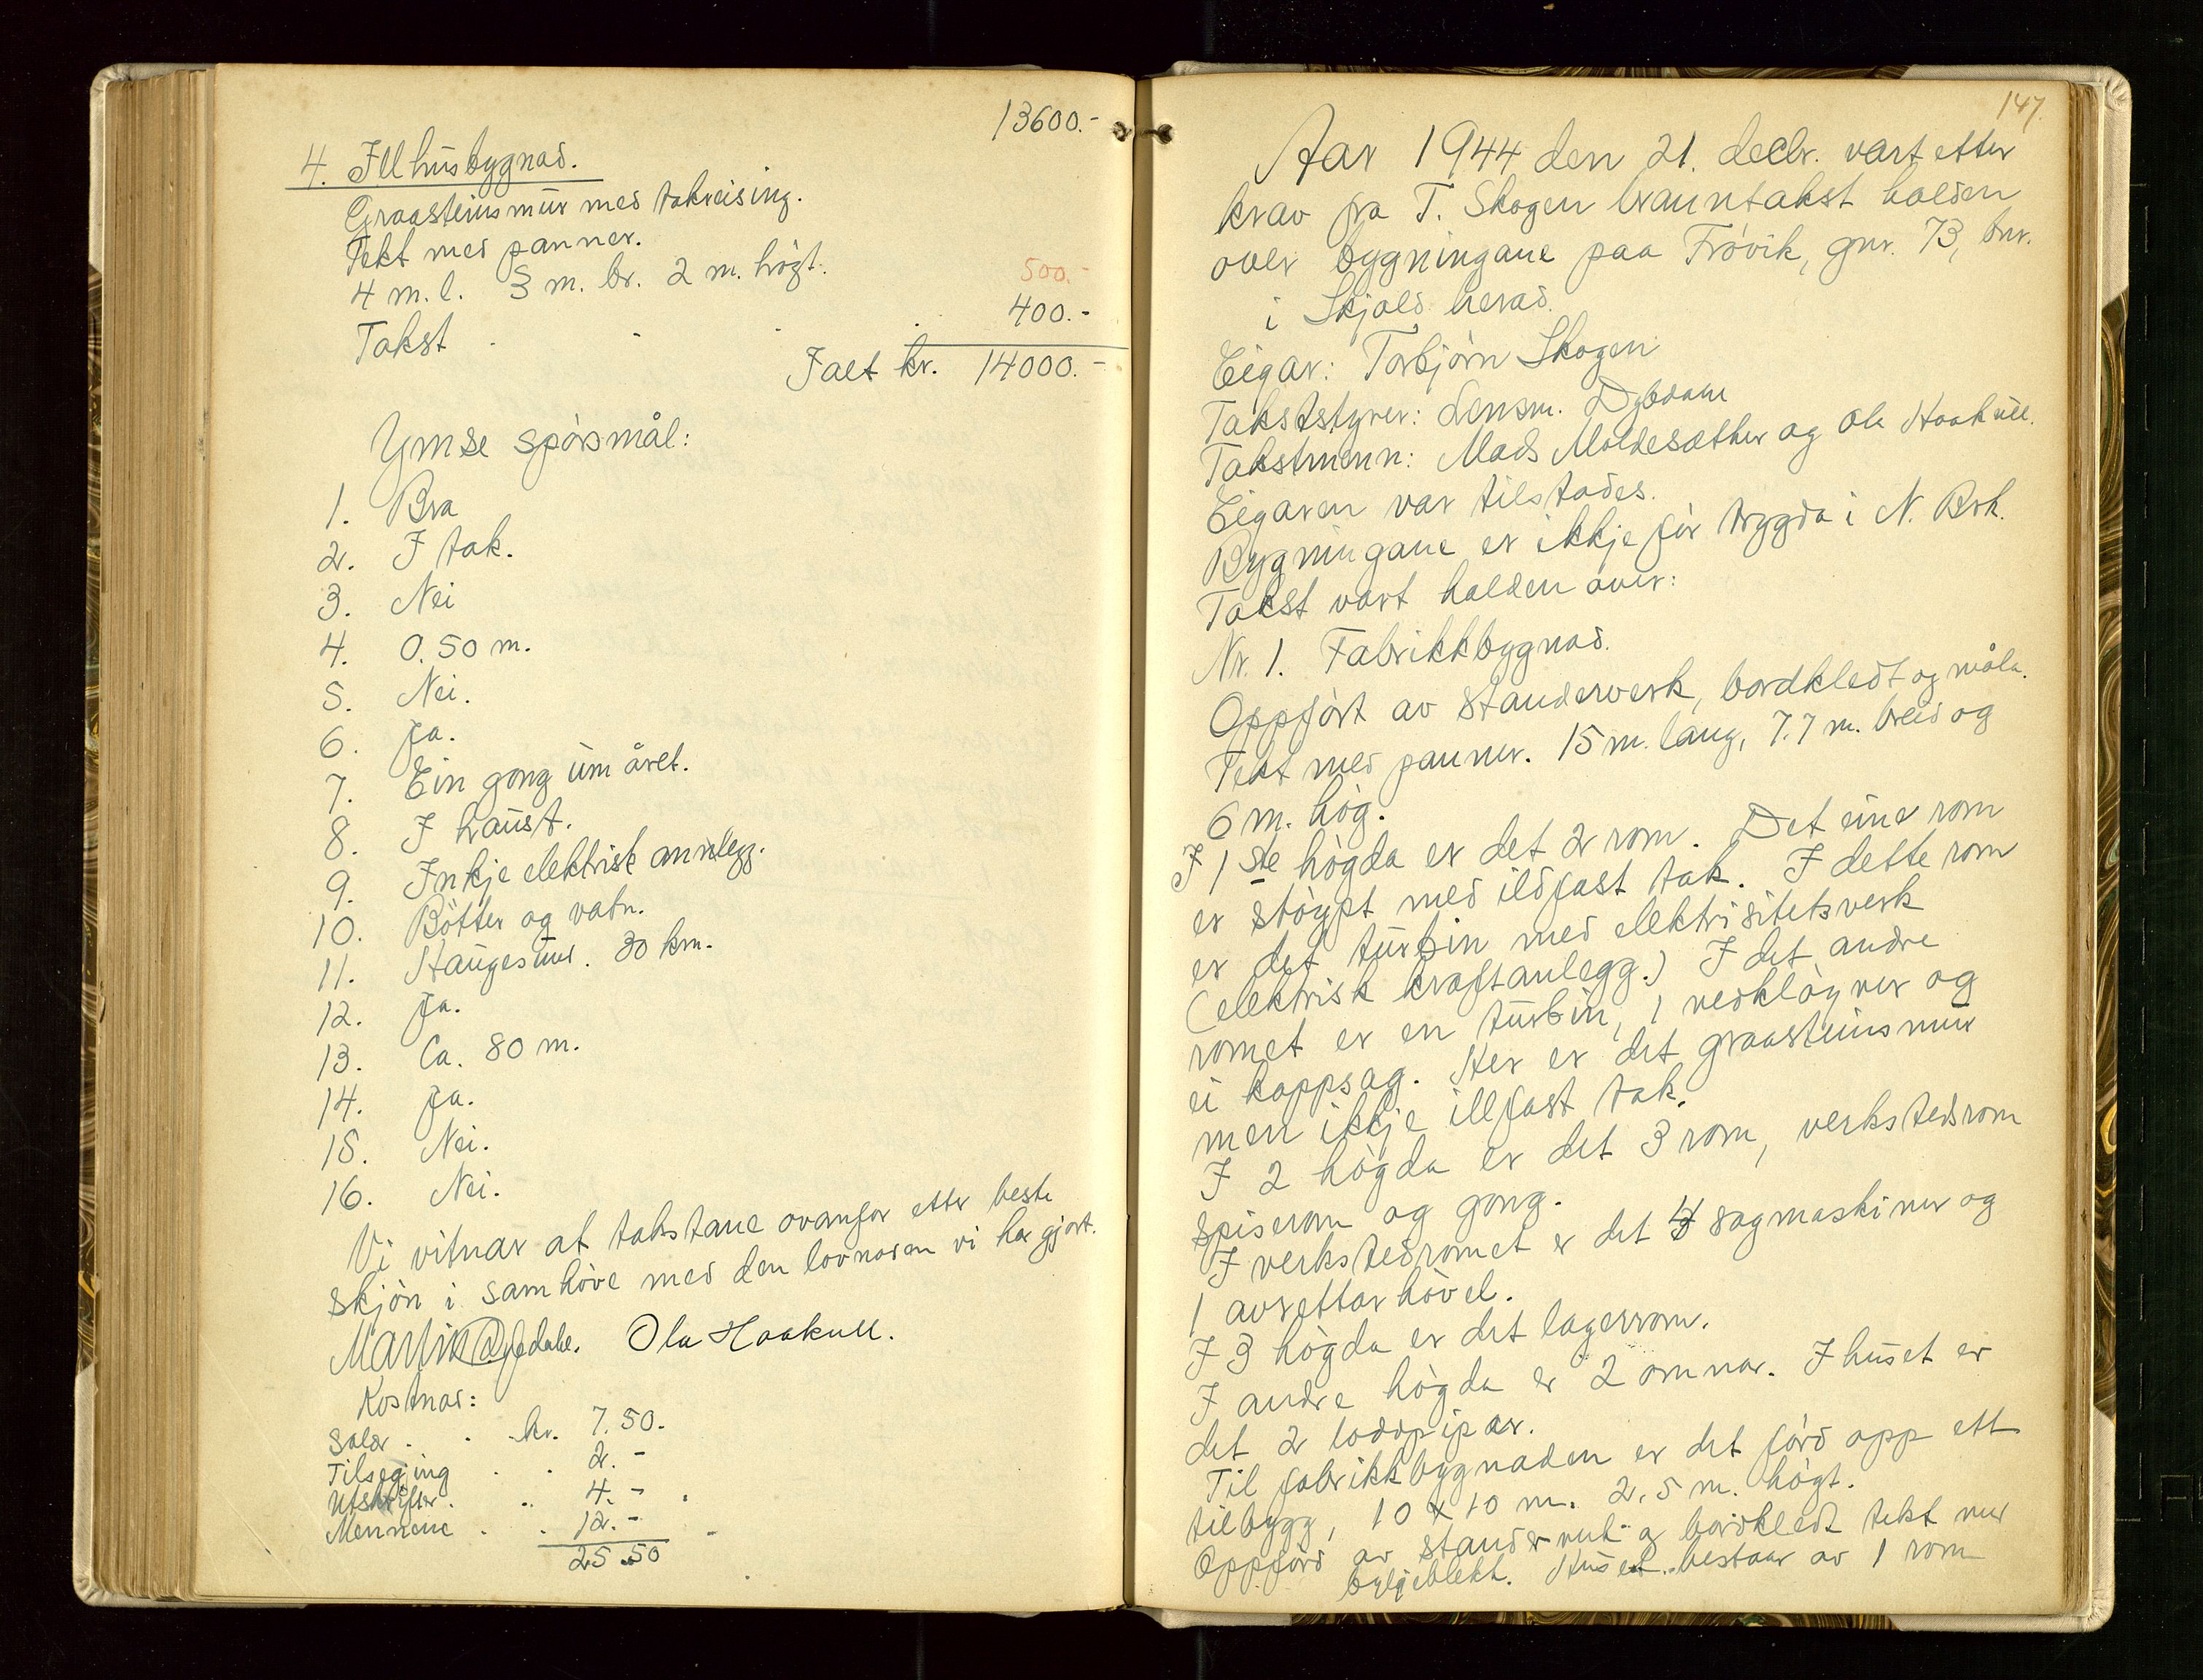 13600.-
4. Illhusbygnad.
Graasteinsmur med takreising.
Tekt med panner.
4 m. l. 3 m. br. 2 m. högt.
500.-
Takst . . . . 400.-
Ialt kr. 14000.-
Ymse spörsmål:
1. Bra
2. I tak.
3. Nei
4. 0.50 m.
5. Nei.
6. Ja.
7. Ein gong um året.
8. I haust.
9. Inkje elektrisk annlegg.
10. Bötter og vatn.
11. Haugesund. 30 km.
12. Ja.
13. Ca. 80 m.
14. Ja.
15. Nei.
16. Nei.
Vi vitnar at takstane ovanfor etter beste
skjön i samhöve med den lovnaden vi har gjort.
Martin Ola Haakull.
Kostnad:
Salær . . kr. 7.50.
Tilsegjing . . 2.-
Utskrifter . .. 4.- .
Mennene . . 12.- .
25.50
147.
Aar 1944 den 21. decbr. vart etter
krav fra T. Skogen branntakst halden
over bygningane paa Frövik, gnr. 73, bnr.
i Skjold herad.
Eigar: Torbjörn Skogen
Takststyrer: Lensm. Dybdahl
Takstmenn: Mads Moldesæther og Ola Haakull.
Eigaren var tilstades.
Bygningane er ikkje för trygda i N. Brk.
Takst vart halden over:
Nr. 1. Fabrikkbygnad.
Oppfört av standerverk, bordkledt og måla.
Tekt med panner. 15 m. lang, 7.7 m. breid og
6 m. hög.
I 1ste högda er det 2 rom. Det eine rom
er stöypt med ildfast tak. I dette rom
er det turbin med elektrisitetsverk
(elektrisk kraftanlegg.) I det andre
romet er en turbin, 1 vedklöyver og
ei kappsag. Her er det graasteinsmur
men ikkje illfast tak.
I 2 högda er det 3 rom, verkstedsrom
spiserom og gong.
I verkstedromet er det 4 sagmaskiner og
1 avrettarhövel.
I 3 högda er det lagerrom.
I andre högda er 2 omnar. I huset er
det 2 loddpipar.
Til fabrikkbygnaden er det förd opp ett
tilbygg, 10 x 10 m. 2,5 m. högt.
Oppförd av standerverk og bordkledt tekt med
bylgjeblekk. Huset bestaar av 1 rom